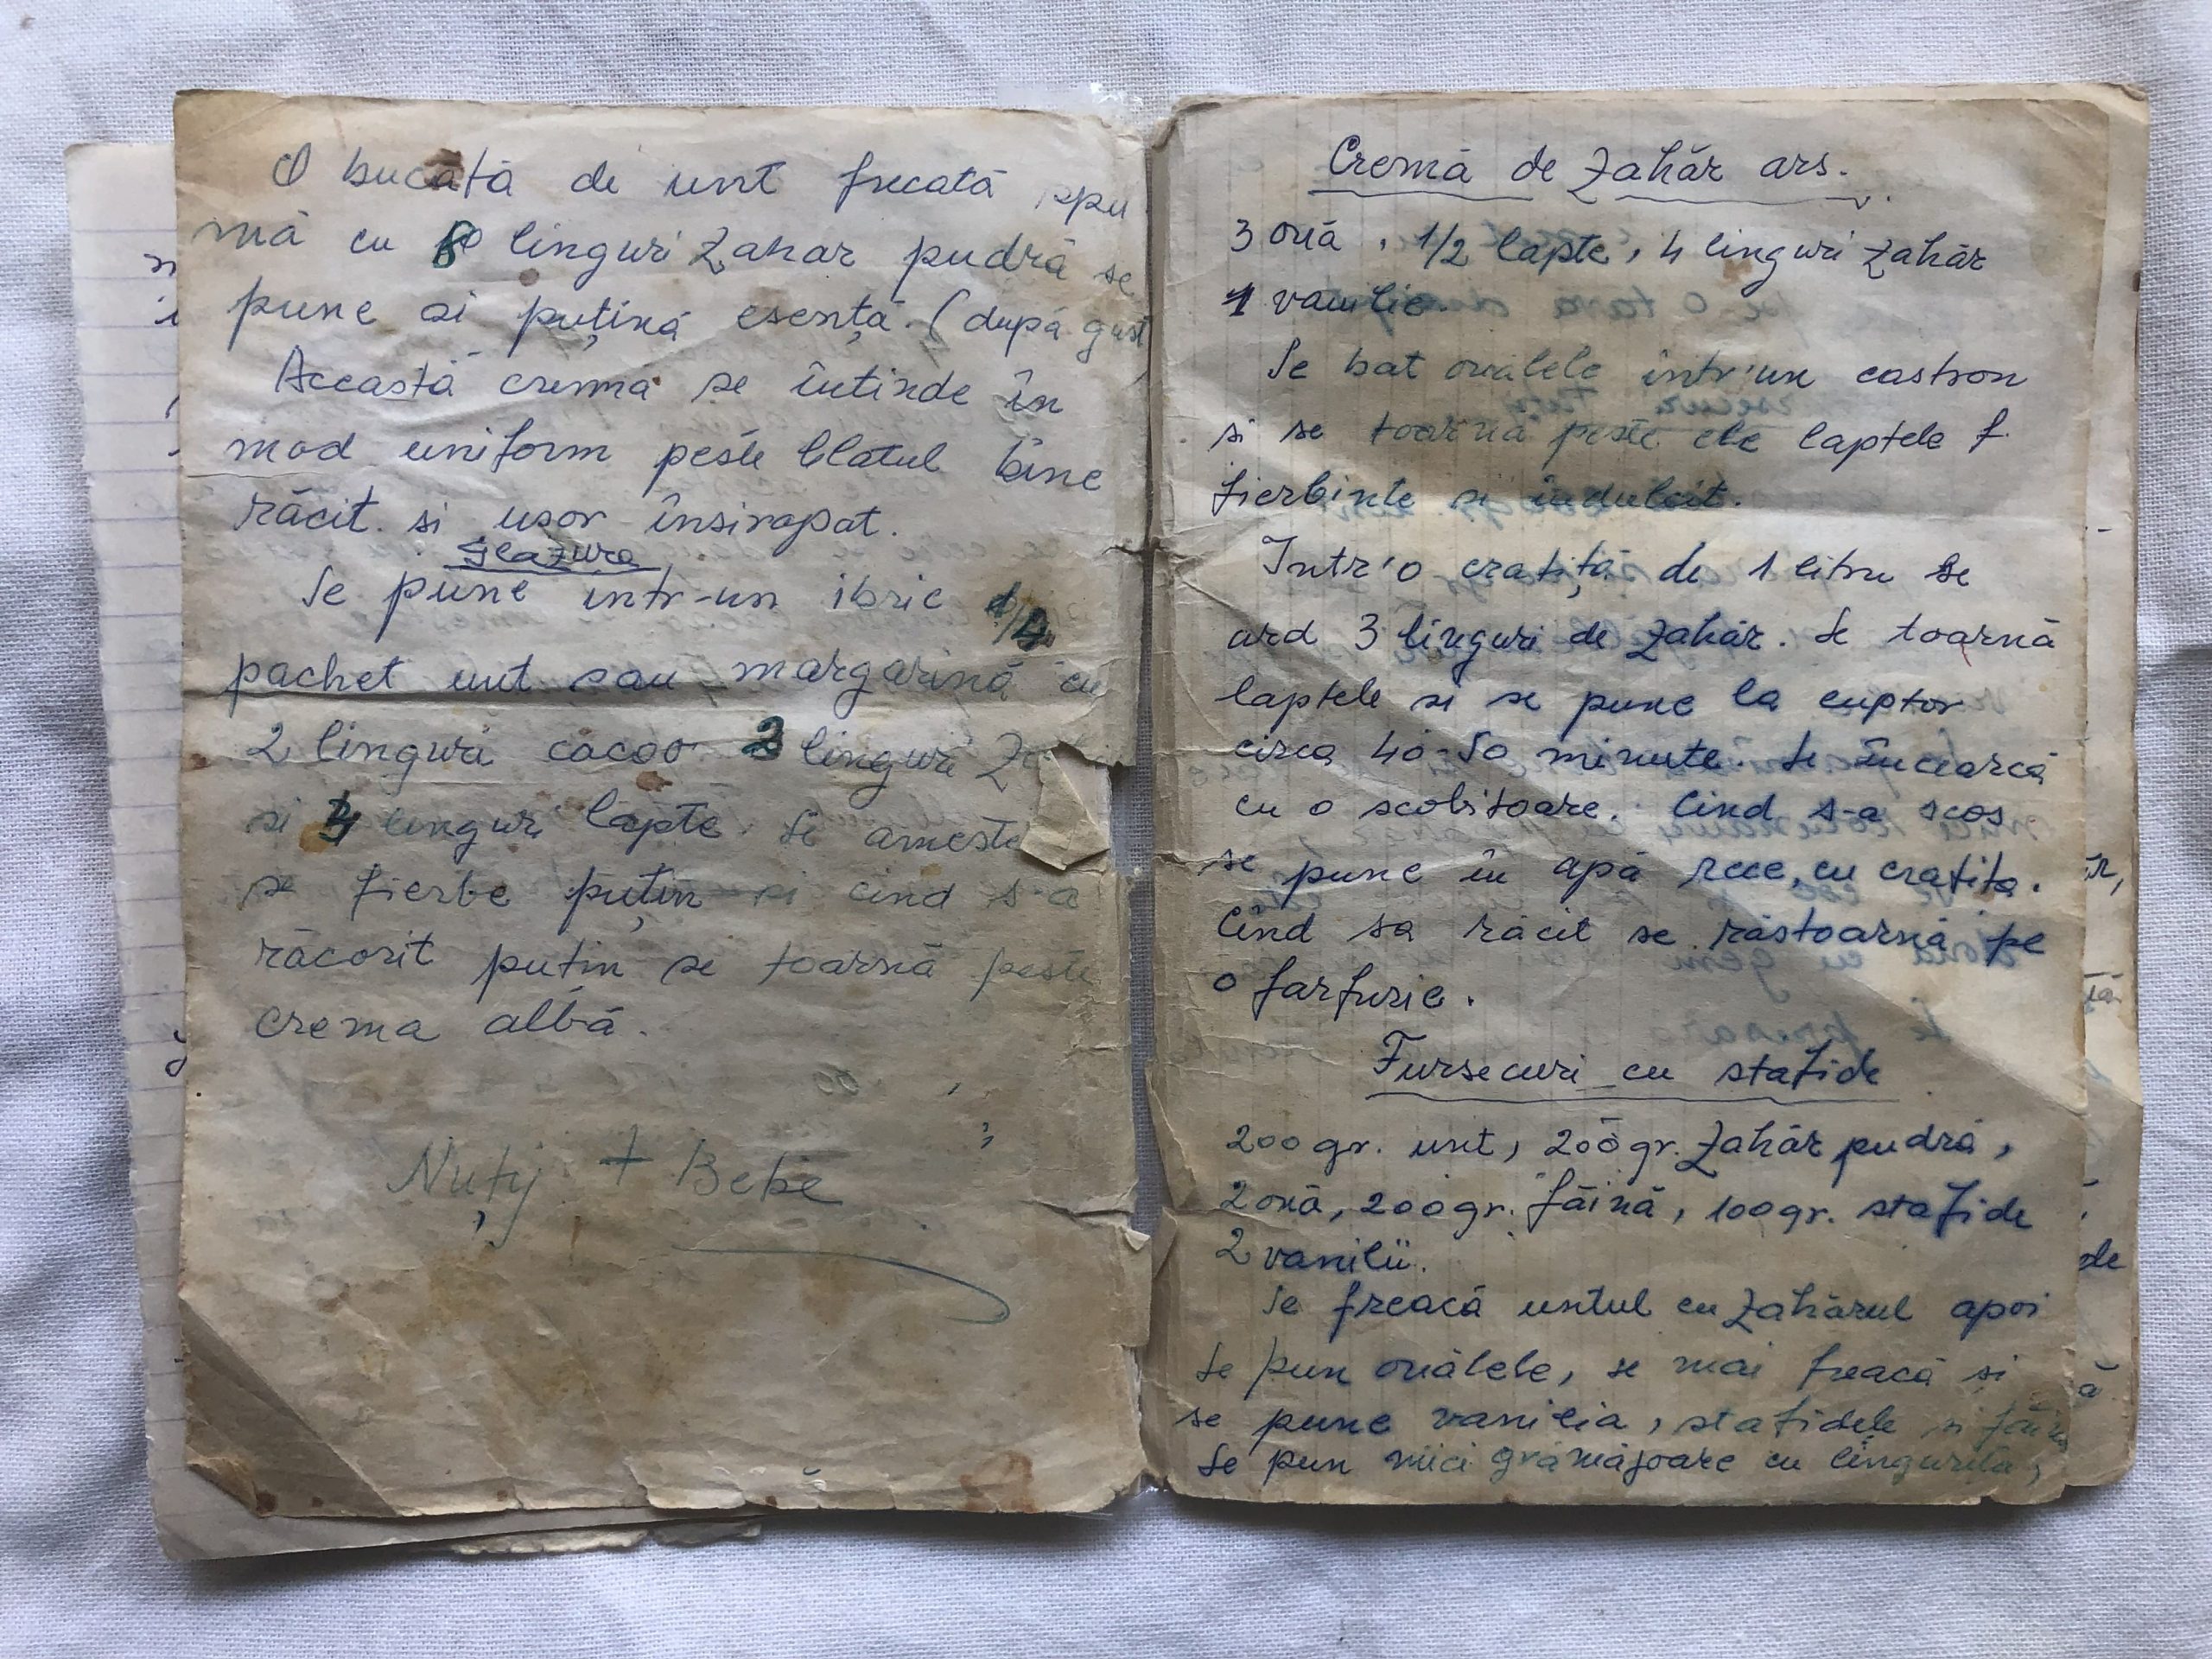 O bucată de unt frecată spu
mă cu 8 linguri zahar pudră se
pune si puțină esență. (după gust
Această cremă se întinde în
mod uniform peste blatul bine
răcit si usor însiropat.
Glazura
Se pune intr-un ibric 1/4
pachet unt sau margarină cu
2 linguri cacao 3 linguri
si 4 linguri lapte. Se ameste
se fierbe puțin si cind s-a
răcorit putin se toarnă peste
crema albă.
Nuțy + Bebe
Cremă de zahăr ars.
3 ouă, 1/2 lapte, 4 linguri zahăr
1 vanilie.
Se bat ouălele într'un castron
si se toarnă peste ele laptele f.
fierbinte si îndulcit.
Intr'o cratiță de 1 litru se
ard 3 linguri de zahăr. Se toarnă
laptele si se pune la cuptor
circa 40-50 minute. Se încearcă
cu o scobitoare. Cind s-a scos
se pune în apă rece, cu cratita.
Cînd sa răcit se răstoarnă pe
o farfurie.
Fursecuri cu stafide
200 gr. unt, 200 gr. zahăr pudră,
2 ouă, 200 gr. făină, 100 gr. stafide
2 vanilii.
Se freacă untul cu zahărul apoi
se pun ouălele, se mai freacă si
se pune vanilia, stafidele si făina
Se pun mici grămăjoare cu lingurita,